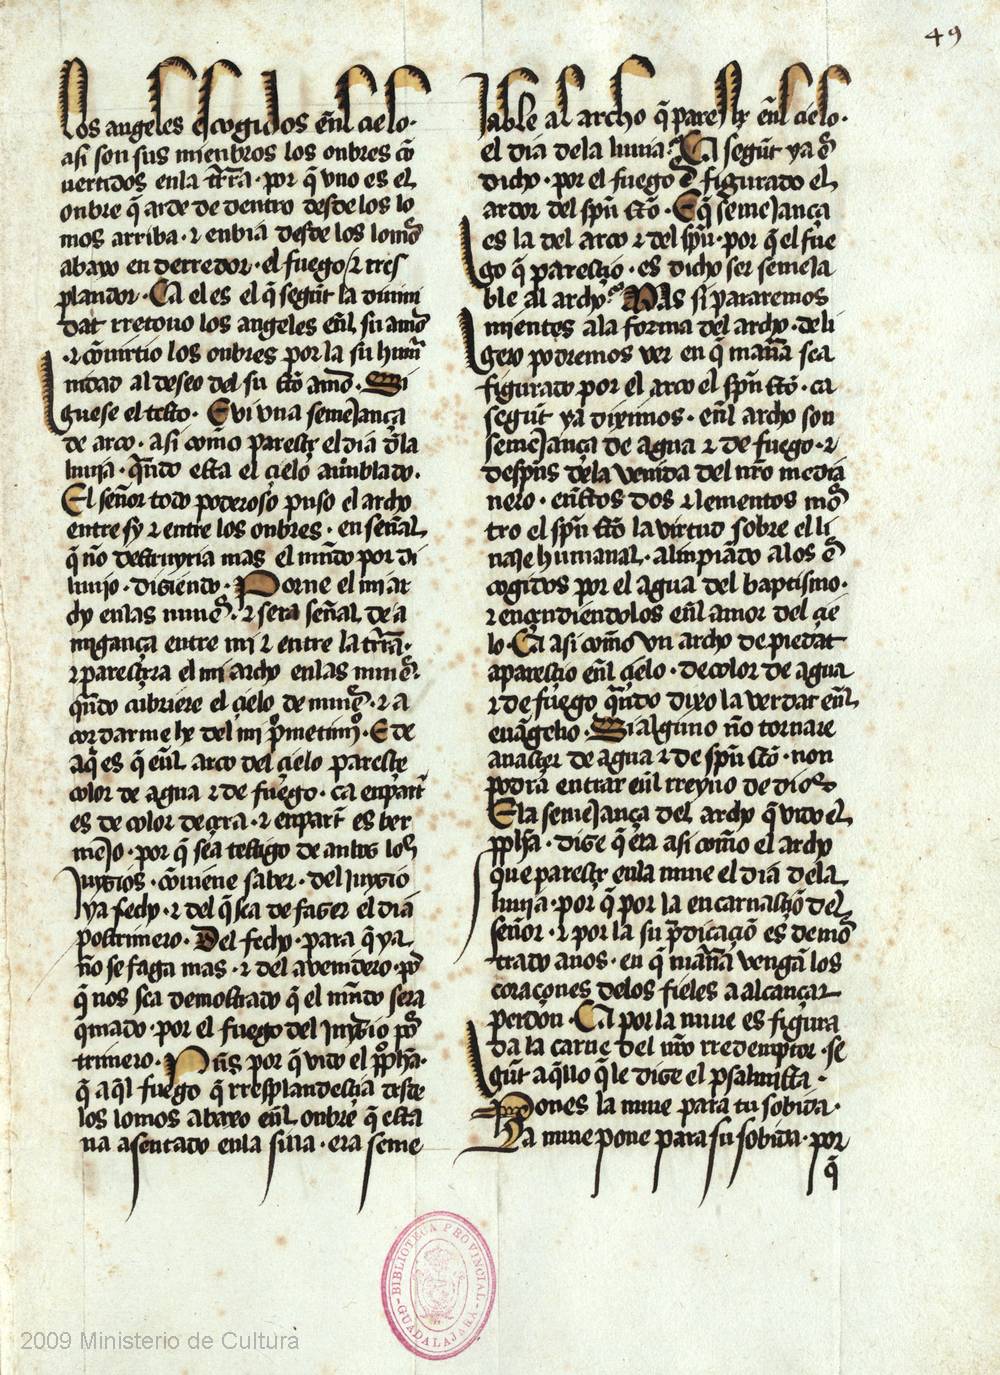 49
los angeles escogidos eñl cielo·
asi son sus mienbros los onbres cō
uertidos enla tr̄ra· por q̄ vno es el
onbre q̄ arde de dentro desde los lo
mos arriba· ⁊ enbia desde los lomos
abaxo en derredor· el fuego ⁊ rres
plandor· Ca el es el q̄ segūt la diuini
dat rretouo los angeles eñl su amor
·⁊ cōuirtio los onbres por la su hum̄
nidad al deseo del su sc̄o amor· Si
guese el testo· E vi vna semejança
de arco· asi com̄o paresçe el dia dela
luuia· qn̄do esta el çielo anublado·
El señor todo poderoso puso el archo
entre sy ⁊ entre los onbres· en señal
q̄ ño destruyria mas el mūdo por di
luuio· disiendo· Porne el mi ar
cho enlas nuues· ⁊ sera señal de a
migança entre mi ⁊ entre la tr̄ra·
⁊ paresçera el mi archo enlas nuues·
qn̄do cubriere el çielo de nuues· ⁊ a
cordarme he del mi p̄metimj̄o· E de
aq̄ es q̄ eñl arco del çielo paresçe
color de agua ⁊ de fuego· ca enpart̄
es de color deçera· ⁊ enpart̄ es ber
mejo· por q̄ sea testigo de anbos los
juyzios· cōuiene saber· del juyzio
ya fecho· ⁊ del q̄ sea de faser el dia
postrimero· Del fecho· para q̄ ya
ño se faga mas· ⁊ del avenidero· por
q̄ nos sea demostrado q̄ el mūdo sera
q̄mado· por el fuego del juyzio pos
trimero· Pūs por q̄ vido el pp̄ha·
q̄ aq̄l fuego q̄ rresplandesçia desde
los lomos abaxo eñl onbre q̄ esta
ua asentado enla silla· era seme
jable al archo q̄ paresçe eñl cielo·
el dia dela luuia· Ca segūt ya es
dicho· por el fuego es figurado el
ardor del spū sc̄o· E q̄ semejança
es la del arco ⁊ del spū· por q̄ el fue
go q̄ paresçio· es dicho ser semeja
ble al archo· Mas si pararemos
mientes ala forma del archo· de li
gero podremos ver en q̄ man̄a sea
figurado por el arco el spū sc̄o· ca
segūt ya diximos· eñl archo son
semejança de agua ⁊ de fuego· ⁊
despūs dela venida del nr̄o media
nero· enestos dos elementos mos
tro el spū sc̄o la virtud sobre el li
naje humanal· alinpiādo alos es
cogidos por el agua del baptismo·
⁊ ençendiendolos eñl amor del çie
lo· Ca asi com̄o vn archo de piedat
aparesçio eñl çielo· decolor de agua
⁊ de fuego qn̄do dixo la verdat eñl
euāgelio· Si alguno ño tornare
anasçer de agua ⁊ de spū sc̄o· non
podra entrar eñl rreyno de dios
E la semejança del archo q̄ vido el
pp̄ha· dise q̄ era asi com̄o el archo
que paresçe enla nuue el dia dela
luuia· por q̄ por la encarnasçiō del
señor· ⁊ por la su p̄dicaçiō es demos
trado anos· en q̄ man̄a vengā los
coraçones delos fieles a alcançar
perdon· Ca por la nuue es figura
da la carne del nr̄o rredemptor· se
gūt aq̄llo q̄ le dise el psalmista·
Pones la nuue para tu sobida·
La nuue pone para su sobida· por
q̄
BIBLIOTECA PROVINCIAL
GUADALAJARA
2009 Ministerio de Cultura